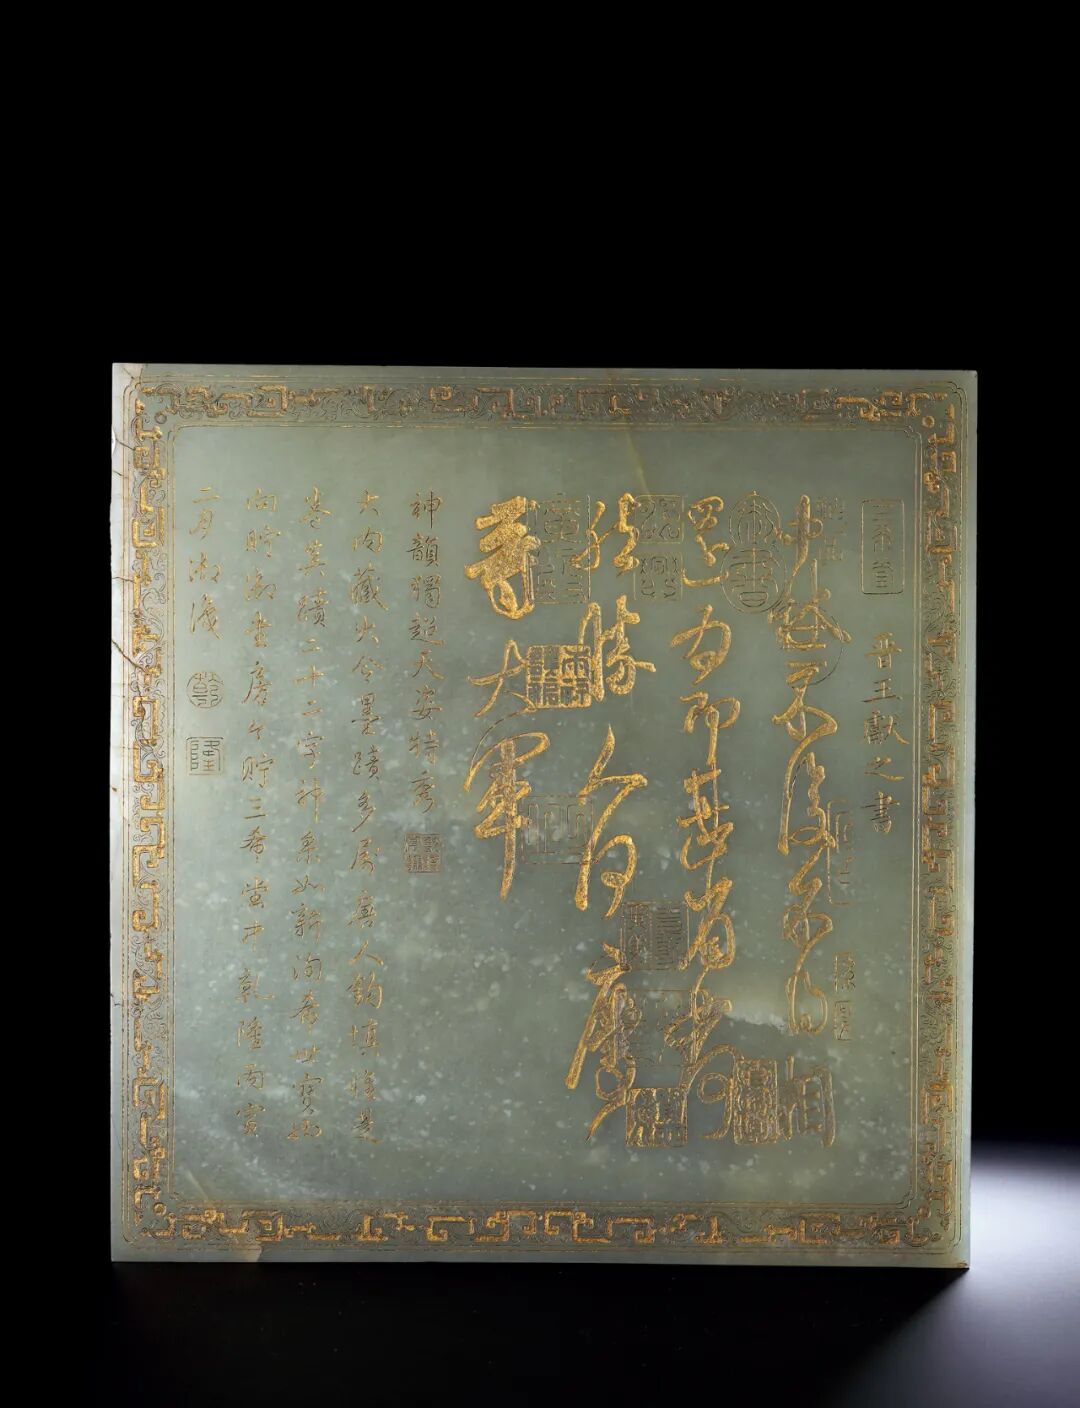 晉王獻之書
中秋不復不得相
還為即甚省如何
然勝人何慶
等大軍
神韻獨超天姿特秀
大內藏大令墨蹟多屬唐人鉤填惟是
卷真蹟二十二字神采如新洵希世寶也
向貯御書房今貯三希堂中乾隆丙寅
二月御識
乾
隆